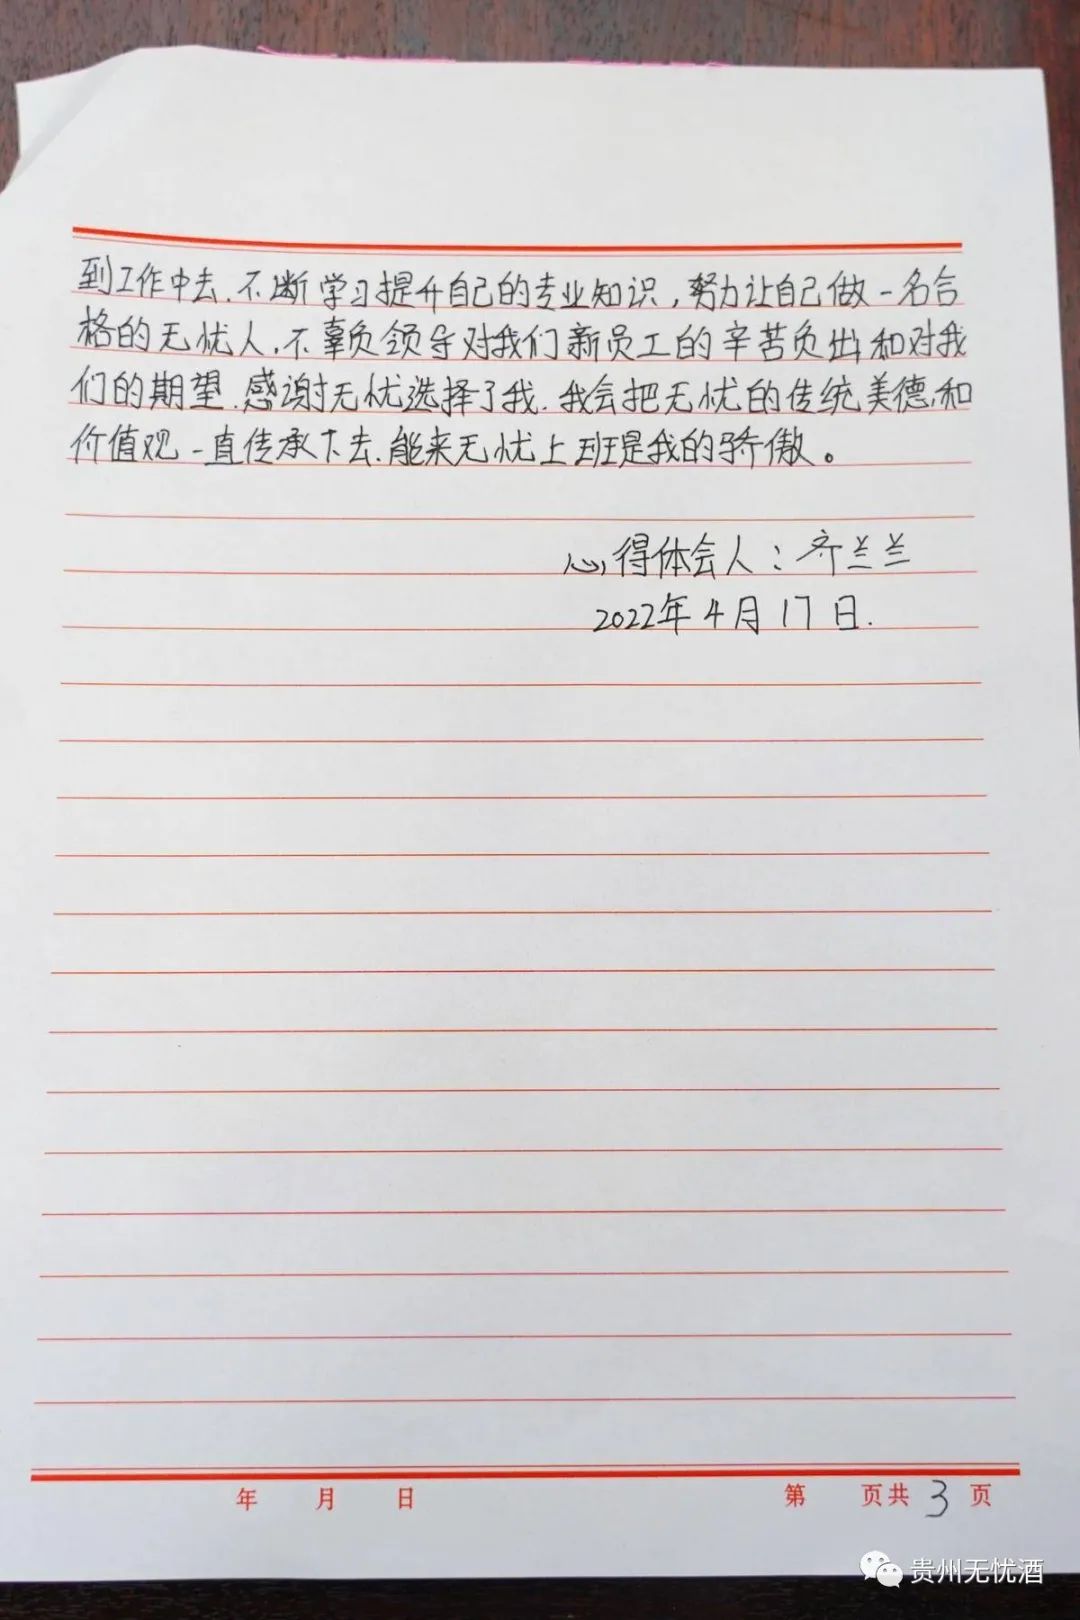 到工作中去.不断学习提升自己的专业知识,努力让自己做一名合
格的无忧人.不辜负领导对我们新员工的辛苦负出和对我
们的期望.感谢无忧选择了我.我会把无忧的传统美德,和
价值观一直传承下去.能来无忧上班是我的骄傲。
心得体会人:齐兰兰
2022年4月17日.
年 月 日 第 页共3页
贵州无忧酒